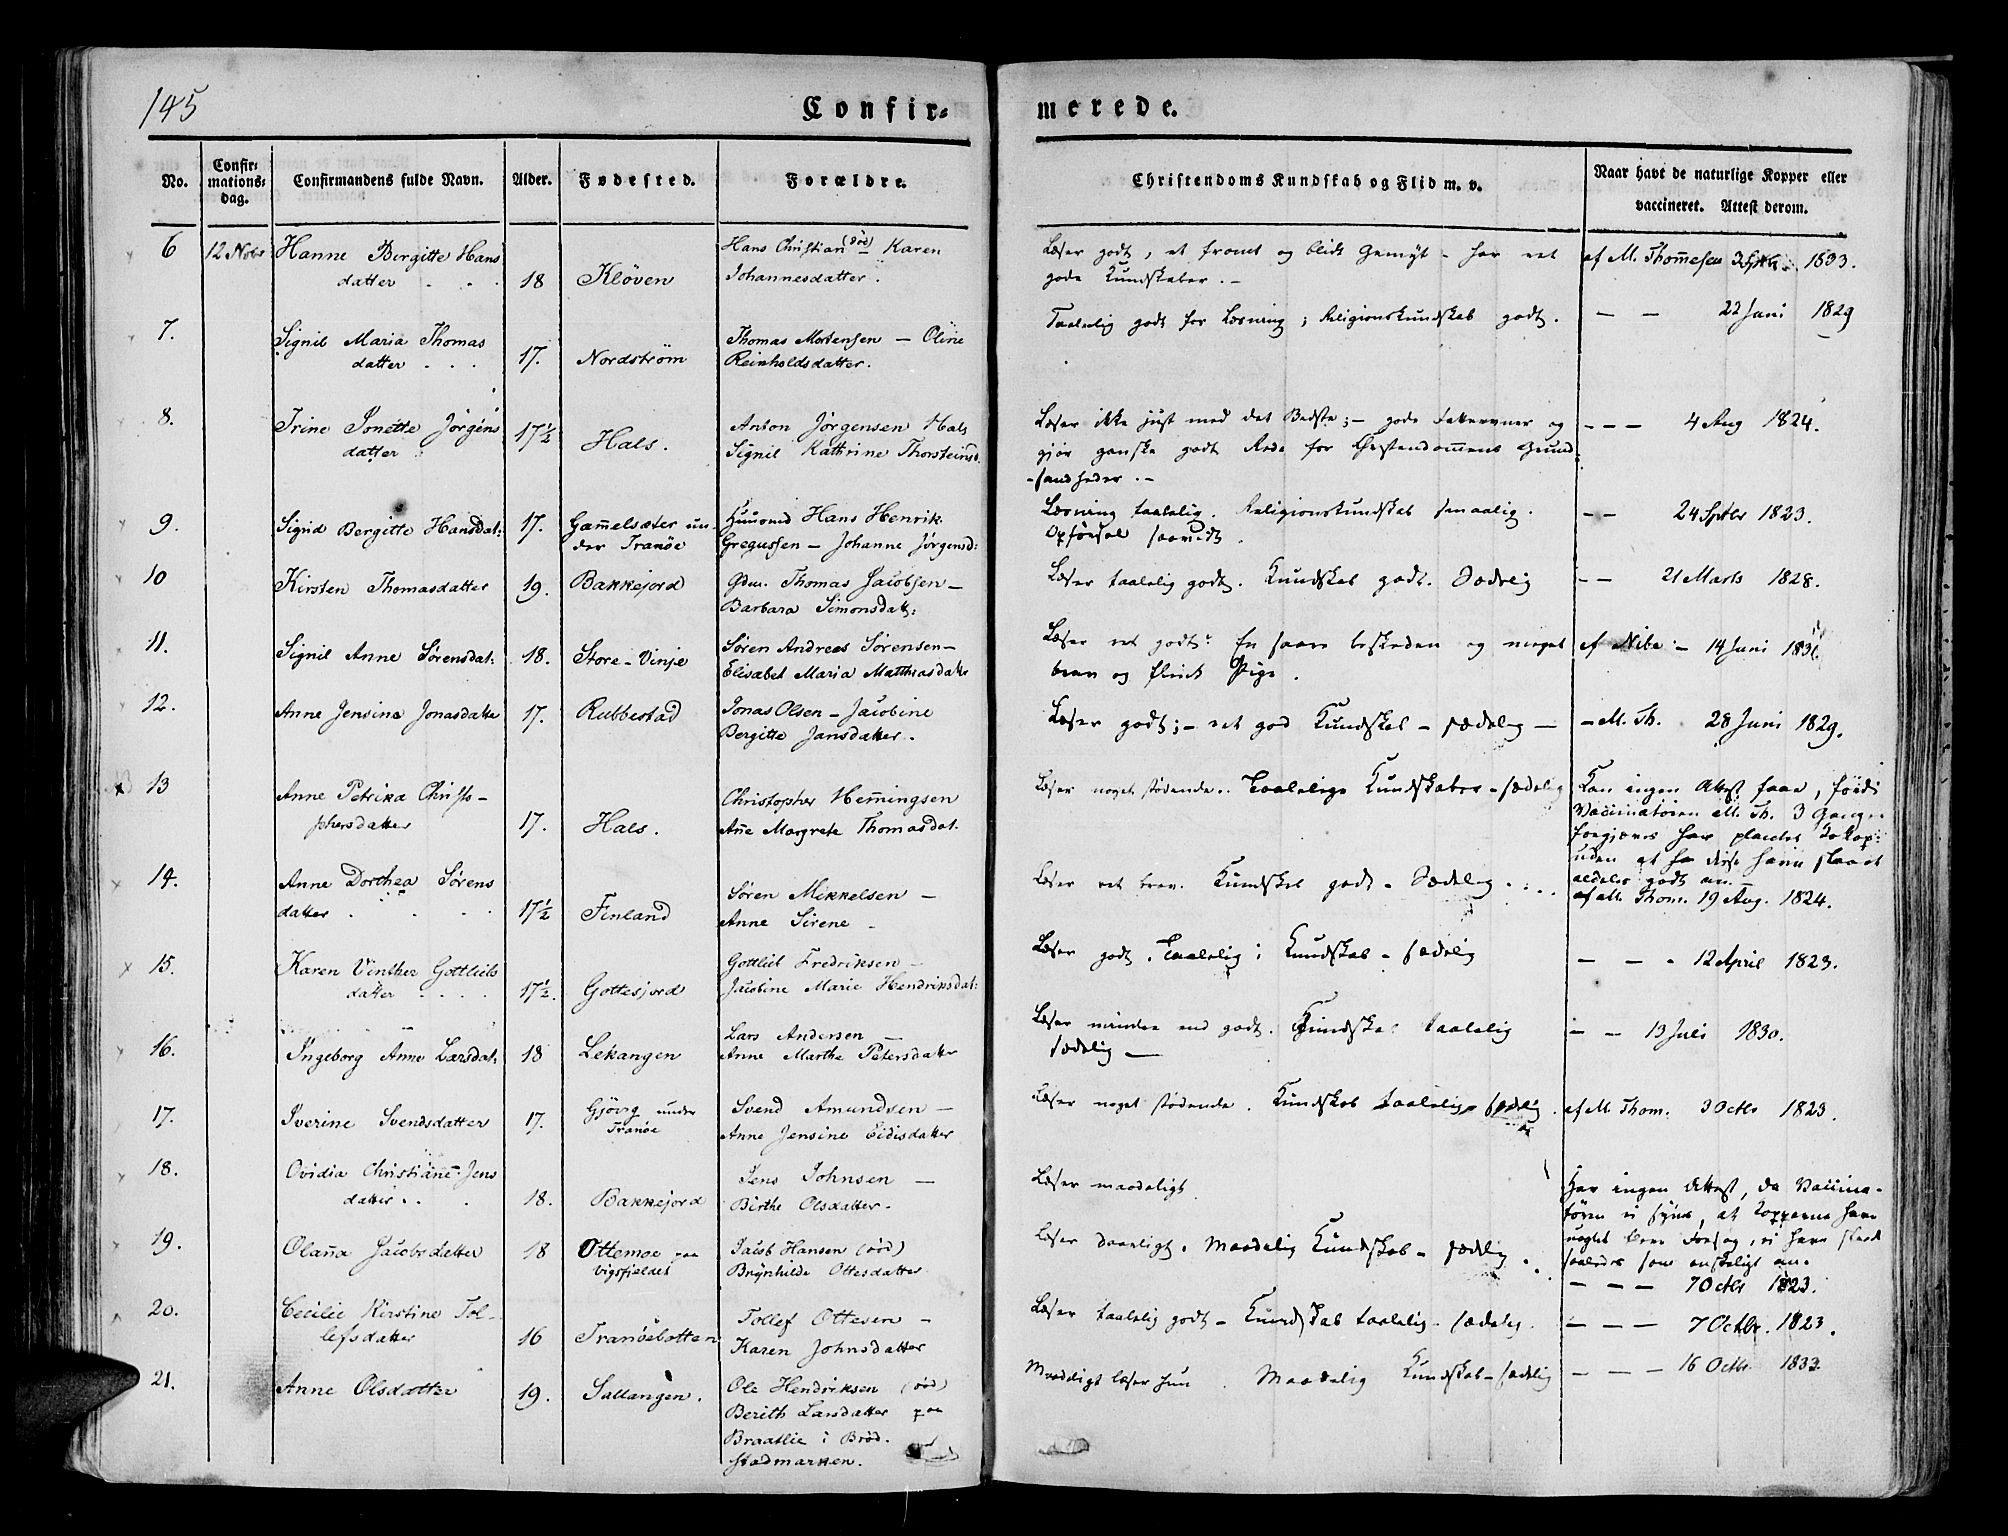 145
Confir=
merede.
No.
Confir=
mations=
dag.
Confirmandens fulde Navn.
Alder.
Fødested.
Forældre.
Christendoms Kundskab og Flid m. v.
Naar havt de naturlige Kopper eller
vaccineret. Attest derom.
6 12 Nobr Hanne Birgitte Hans
datter 18 Kløven
Hans Christian (død) Karen
Johannesdatter.
Læser godt, et fromt og blidt Gemyt - har ret
gode Kundskaber. -
af M. Thomesen 1833.
7. Signil Maria Thomas
datter 17. Nordstrøm
Thomas Mortensen — Oline
Reinholdsdatter.
Taalelig godt for Læsning; Religionskundskab godt.
— — 22 Juni 1829
8. Trine Jonette Jørgens
datter 17½ Hals.
Anton Jørgensen Hals
Signil Kathrine Thorsteinsd.
Læser ikke just med det Bedste; - gode og
gjør ganske godt Rede for Christendommens Grund-
-sandheder. -
— — — 4 Aug 1824.
9. Sigrid Bergitte Hansdat: 17. Gamelsæter un-
der Tranøe
Huusmd Hans Henrik
Gregussen — Johanne Jørgensd:
Læsning taalelig. Religionskundskab smaalig.
Opførsel
— — 24 Sptbr 1823.
10 Kirsten Thomasdatter 19. Bakkejord
Gdm. Thomas Jacobsen —
Barbara Simonsdatt:
Læser taalelig godt. Kundskab godt. Sædelig
— — 21 Marts 1828.
11. Signil Anne Sørensdat: 18. Store-Vinje
Søren Andreas Sørensen —
Elisabet Maria Matthiasdatter
Læser ret godt. En saare beskeden og meget
brav og flink Pige.
af Nibe — 14 Juni
12. Anne Jensine Jonasdatter 17. Rubbestad
Jonas Olsen — Jacobine
Bergitte Jansdatter.
Læser godt; - ret god Kundskab - sædelig —
— M. Th. 28 Juni 1829.
13 Anne Petrika Christo-
phersdatter 17. Hals.
Christopher Hemingsen
Ane Margrete Thomasdat.
Læser noget stødende. Taalelige Kundskaber - sædelig
Kan ingen Attest faae, fordi
Vaccinatøren M. Th. 3 Gange
forgjæves har plantet
uden at disse have slaaet
aldeles godt an. —
14. Anne Dorthea Sørens
datter 17½ Finland
Søren Mikkelsen —
Anne Sirene
Læser ret brav. Kundskab godt - Sædelig.
af M. Thom. 19 Aug. 1824.
15. Karen Vinther Gottlieb
datter 17½. Gottesjord
Gottlieb Fredriksen —
Jacobine Marie Hendriksdat:
Læser godt. Taalelig i Kundskab - sædelig
— — - 12 April 1823.
16. Ingeborg Anne Larsdat: 18 Lekangen
Lars Andersen —
Anne Marthe Petersdatter
Læser mindre end godt. Kundskab taalelig
sædelig —
— — 13 Juli 1830.
17. Iverine Svendsdatter 17. Gjövig under
Tranøe
Svend Amundsen —
Anne Jensine Eidisdatter
Læser noget stødende. Kundskab taalelig, sædelig.
af M. Thom. 3 Octbr 1823.
18. Ovidia Christiane Jens
datter 18. Bakkejord
Jens Johnsen —
Birthe Olsdatter.
Læser maadeligt.
Har ingen Attest, da Vaccina-
tøren ei synes, at Kopperne have
ei have slaaet
saaledes som ønskeligt an.
19. Olaña Jacobsdatter 18 Ottemoe paa
vigsfieldet
Jacob Hansen (død)
Brynhilde Ottesdatter
Læser daarligt. Maadelig Kundskab - sædelig
— — — 7 Octbr 1823.
20. Cecilie Kirstine Tol-
lefsdatter 16 Tranöebotten
Tollef Ottesen —
Karen Johnsdatter
Læser taalelig godt - Kundskab taalelig. sædelig.
— — — 7 Octbr. 1823.
21. Anne Olsdatter 19. Sallangen.
Ole Hendriksen (død)
Berith Larsdatter paa
Braatlie i Brød-
stadmarken.
Maadeligt læser hun. Maadelig Kundskab - sædelig
— — — 16 Octbr 1833.